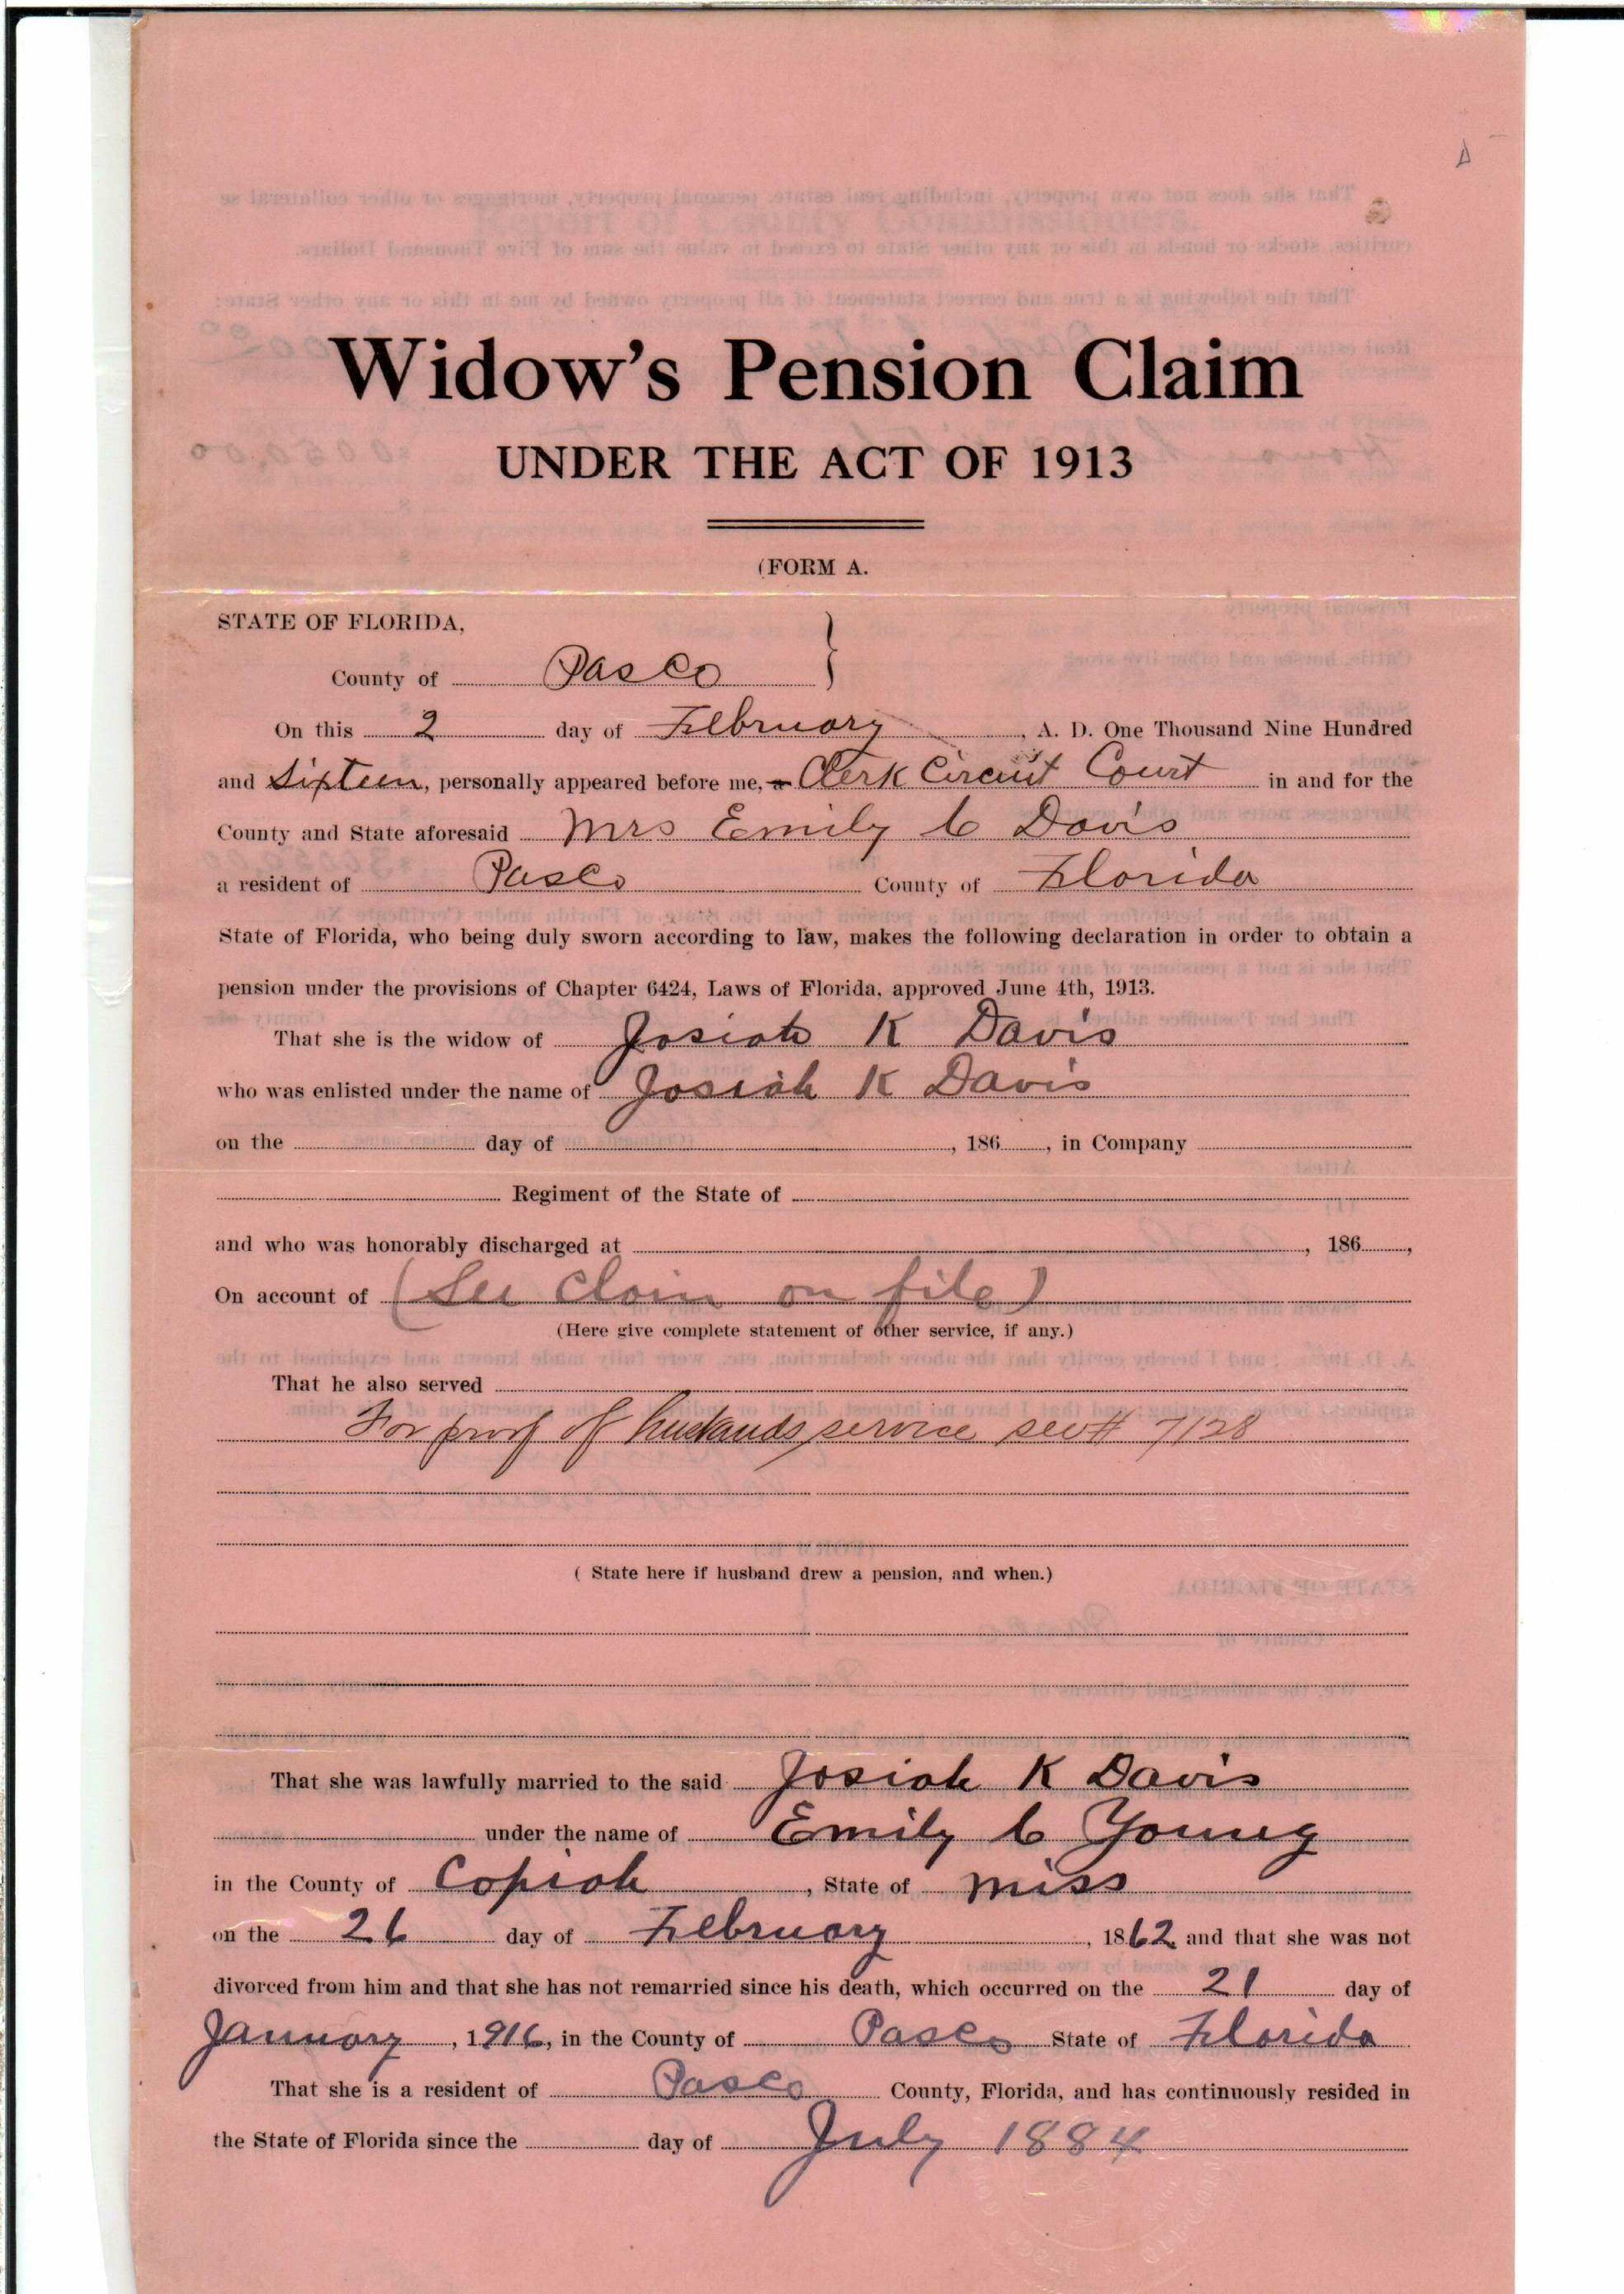 Widow's Pension Claim
UNDER THE ACT OF 1913
(FORM A.
STATE OF FLORIDA,
County of Pasco
On this 2 day of February, A. D. One Thousand Nine Hundred
and Sixteen, personally appeared before me, a Clerk Circuit Court in and for the
County and State aforesaid Mrs Emily C Davis
a resident of Pasco County of Florida
State of Florida, who being duly sworn according to law, makes the following declaration in order to obtain a
pension under the provisions of Chapter 6424, Laws of Florida, approved June 4th, 1913.
That she is the widow of Josiah K Davis
who was enlisted under the name of Josiah K Davis
on the day of , 186 , in Company
Regiment of the State of
and who was honorably discharged at , 186 ,
On account of (See claim on file)
(Here give complete statement of other service, if any.)
That he also served
For proof of husbands service see # 7128
( State here if husband drew a pension, and when.)
That she was lawfully married to the said Josiah K Davis
under the name of Emily C Young
in the County of Copiah, State of Miss
on the 26 day of February, 1862 and that she was not
divorced from him and that she has not remarried since his death, which occurred on the 21 day of
January, 1916, in the County of Pasco State of Florida
That she is a resident of Pasco County, Florida, and has continuously resided in
the State of Florida since the day of July 1884